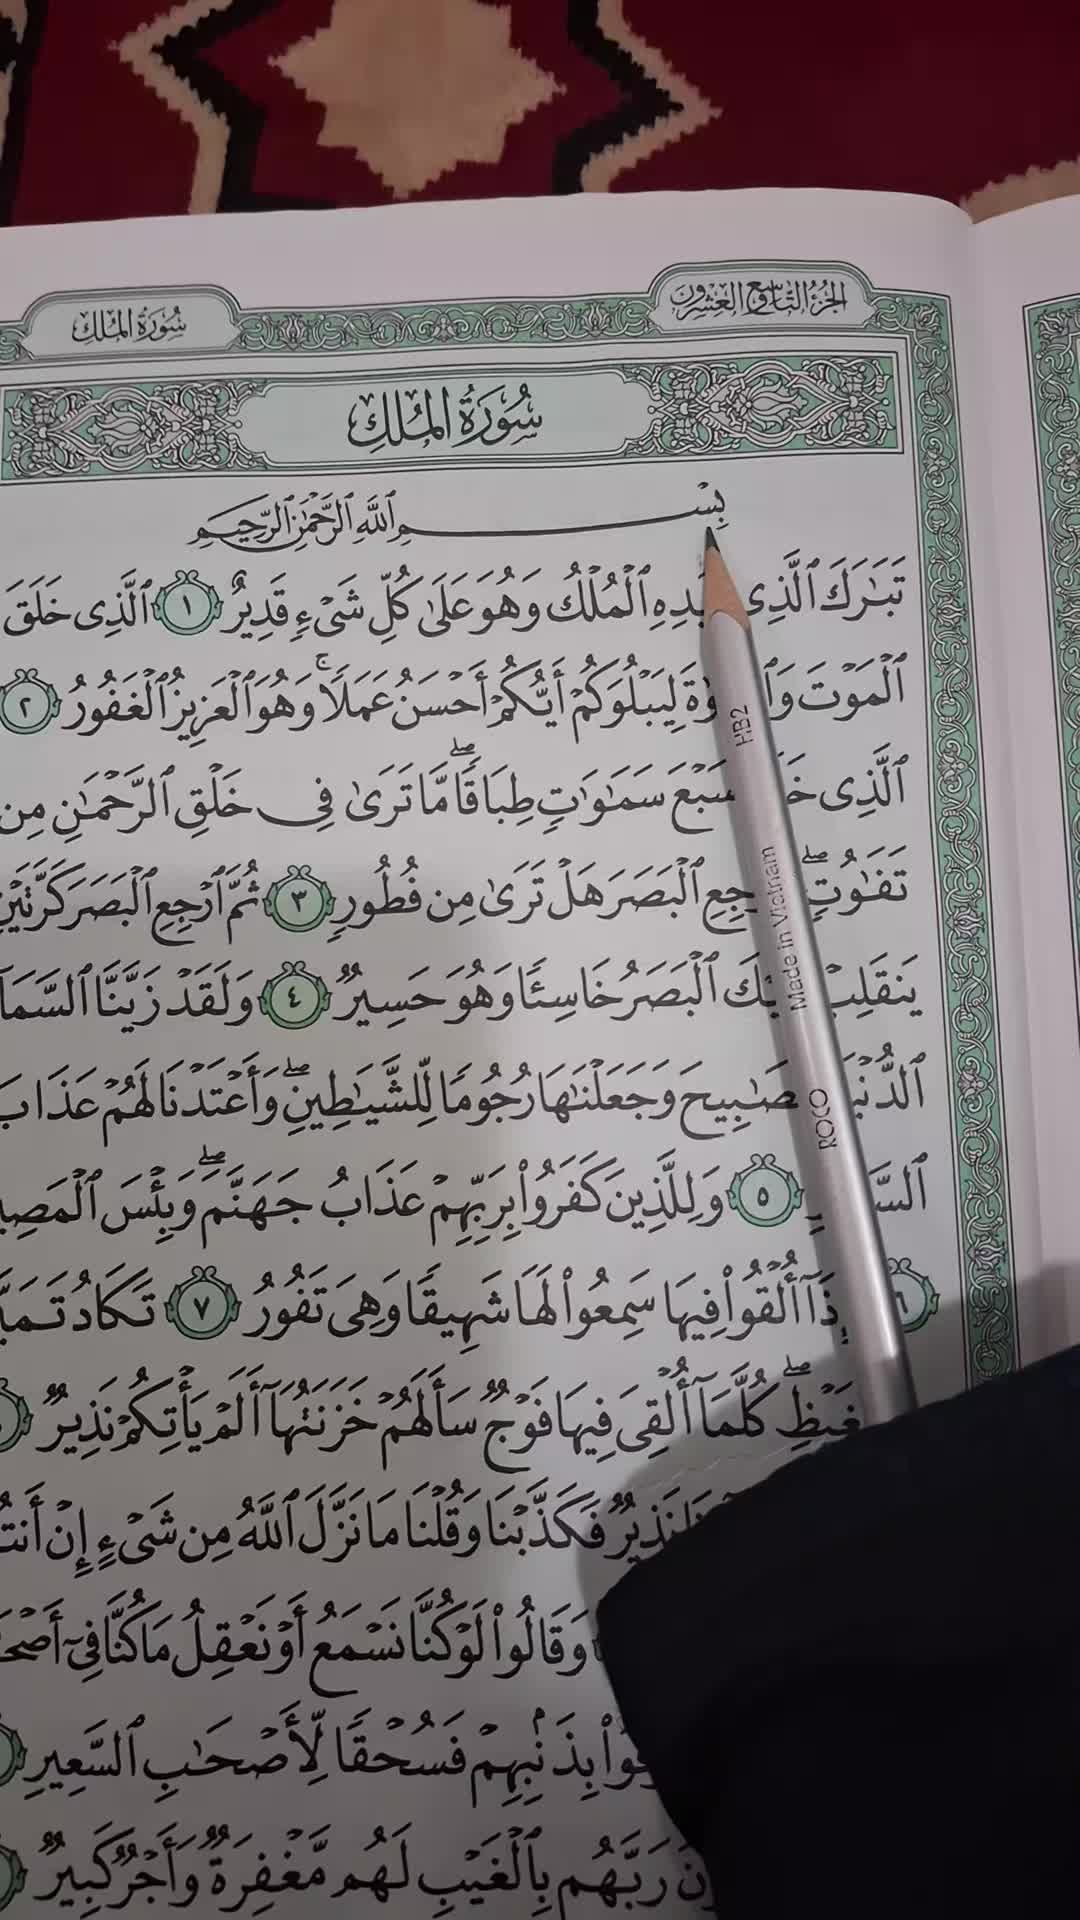 الجزء التاسع والعشرون
سورة الملك
سُورَةُ المُلكِ
بِسْمِ ٱللَّهِ ٱلرَّحْمَٰنِ ٱلرَّحِيمِ
تَبَٰرَكَ ٱلَّذِى بِيَدِهِ ٱلْمُلْكُ وَهُوَ عَلَىٰ كُلِّ شَىْءٍ قَدِيرٌ ١ ٱلَّذِى خَلَقَ
ٱلْمَوْتَ لِيَبْلُوَكُمْ أَيُّكُمْ أَحْسَنُ عَمَلًا ۚ وَهُوَ ٱلْعَزِيزُ ٱلْغَفُورُ ٢
ٱلَّذِى سَبْعَ سَمَٰوَٰتٍ طِبَاقًا ۖ مَّا تَرَىٰ فِى خَلْقِ ٱلرَّحْمَٰنِ مِن
تَفَٰوُتٍ ۖ ٱلْبَصَرَ هَلْ تَرَىٰ مِن فُطُورٍ ٣ ثُمَّ ٱرْجِعِ ٱلْبَصَرَ كَرَّتَيْنِ
يَنقَلِبْ ٱلْبَصَرُ خَاسِئًا وَهُوَ حَسِيرٌ ٤ وَلَقَدْ زَيَّنَّا
وَجَعَلْنَٰهَا رُجُومًا لِّلشَّيَٰطِينِ ۖ وَأَعْتَدْنَا لَهُمْ عَذَابَ
٥ وَلِلَّذِينَ كَفَرُوا۟ بِرَبِّهِمْ عَذَابُ جَهَنَّمَ ۖ وَبِئْسَ
٦ أُلْقُوا۟ فِيهَا سَمِعُوا۟ لَهَا شَهِيقًا وَهِىَ تَفُورُ ٧ تَكَادُ
كُلَّمَآ أُلْقِىَ فِيهَا فَوْجٌ سَأَلَهُمْ خَزَنَتُهَآ أَلَمْ يَأْتِكُمْ نَذِيرٌ
نَذِيرٌ فَكَذَّبْنَا وَقُلْنَا مَا نَزَّلَ ٱللَّهُ مِن شَىْءٍ إِنْ
وَقَالُوا۟ لَوْ كُنَّا نَسْمَعُ أَوْ نَعْقِلُ مَا كُنَّا فِىٓ
بِذَنۢبِهِمْ فَسُحْقًا لِّأَصْحَٰبِ ٱلسَّعِيرِ
رَبَّهُم بِٱلْغَيْبِ لَهُم مَّغْفِرَةٌ وَأَجْرٌ كَبِيرٌ
HB2
Made in Vietnam
ROCO